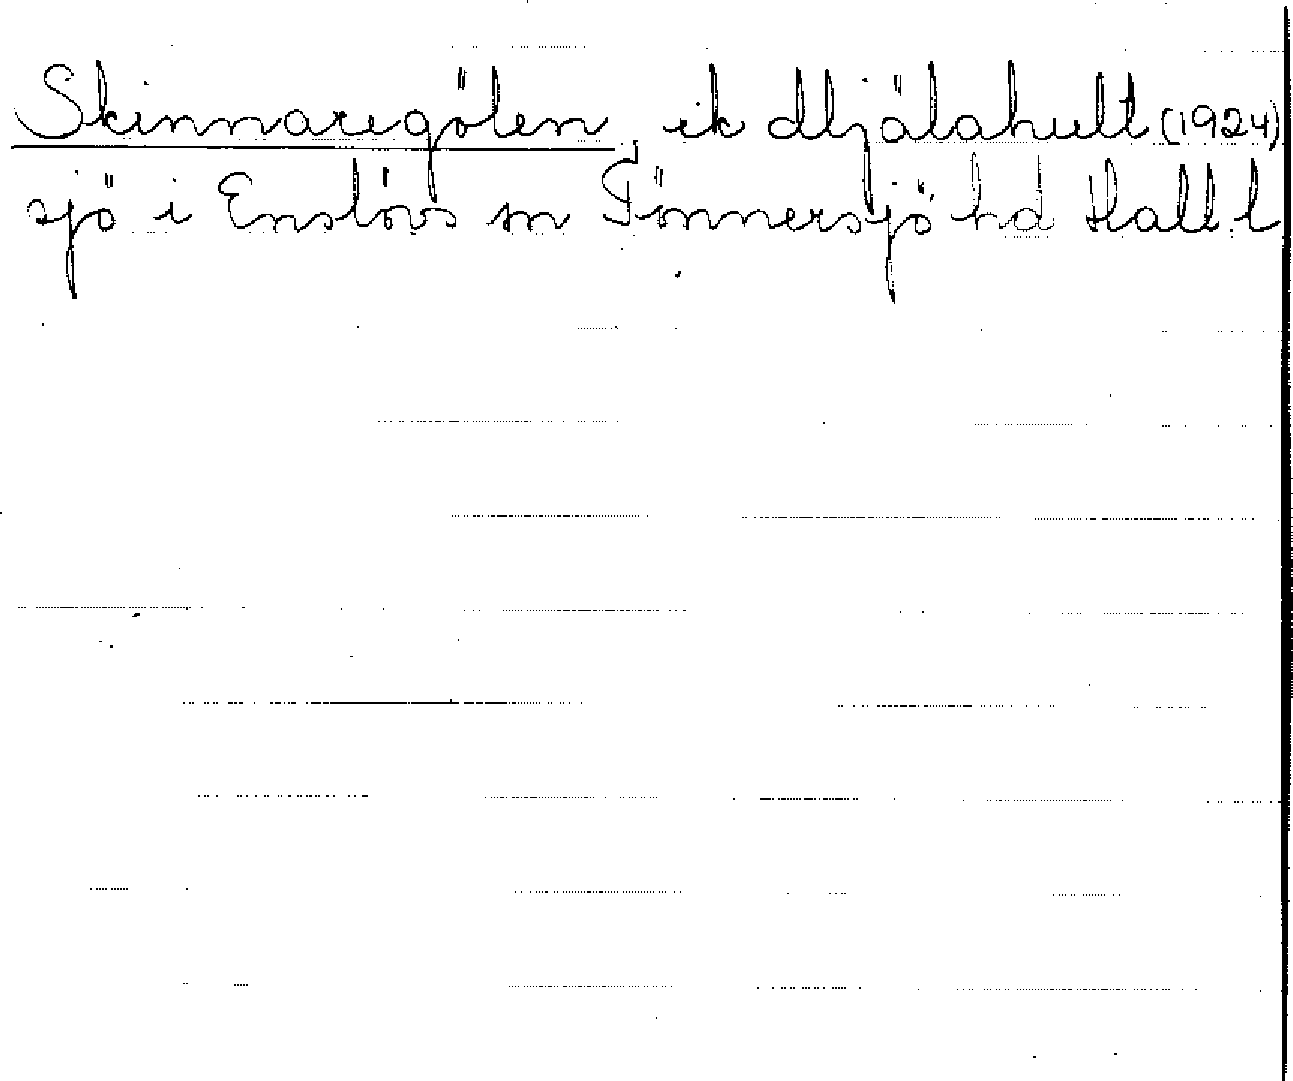 Skinnaregölen, ek Hjälahult (1924)
sjö i Enslövs sn Tönnersjö hd Hall. l